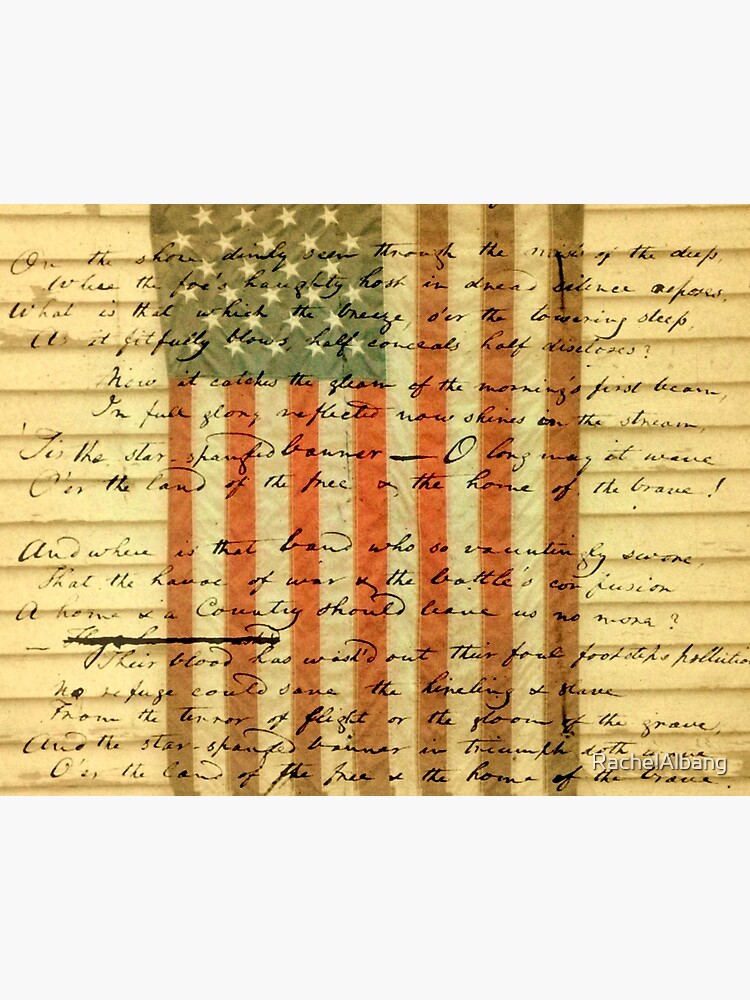 On the shore dimly seen through the mists of the deep,
Where the foe's haughty host in dread silence reposes,
What is that which the breeze, o'er the towering steep,
As it fitfully blows, half conceals, half discloses?
Now it catches the gleam of the morning's first beam,
In full glory reflected now shines in the stream,
'Tis the star-spangled banner — O long may it wave
O'er the land of the free & the home of the brave!
And where is that band who so vauntingly swore,
That the havoc of war & the battle's confusion
A home & a Country should leave us no more?
—
Their blood has wash'd out their foul footsteps pollution
No refuge could save the hireling & slave
From the terror of flight or the gloom of the grave,
And the star-spangled banner in triumph doth wave
O'er the land of the free & the home of the brave.
RachelAlbang